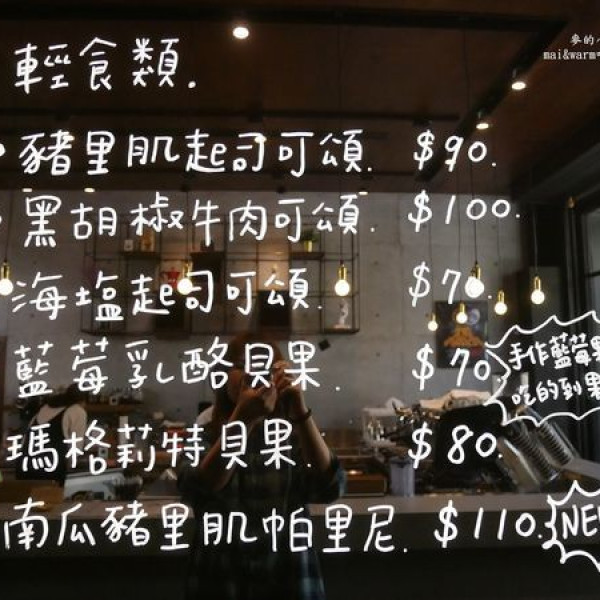 麥的
mai&warm
輕食類.
豬里肌起司可頌. $90.
黑胡椒牛肉可頌. $100.
海塩起司可頌. $70.
藍莓乳酪貝果. $70
手作藍莓果
吃的到果
瑪格莉特貝果. $80.
南瓜豬里肌帕里尼. $110.
NEW